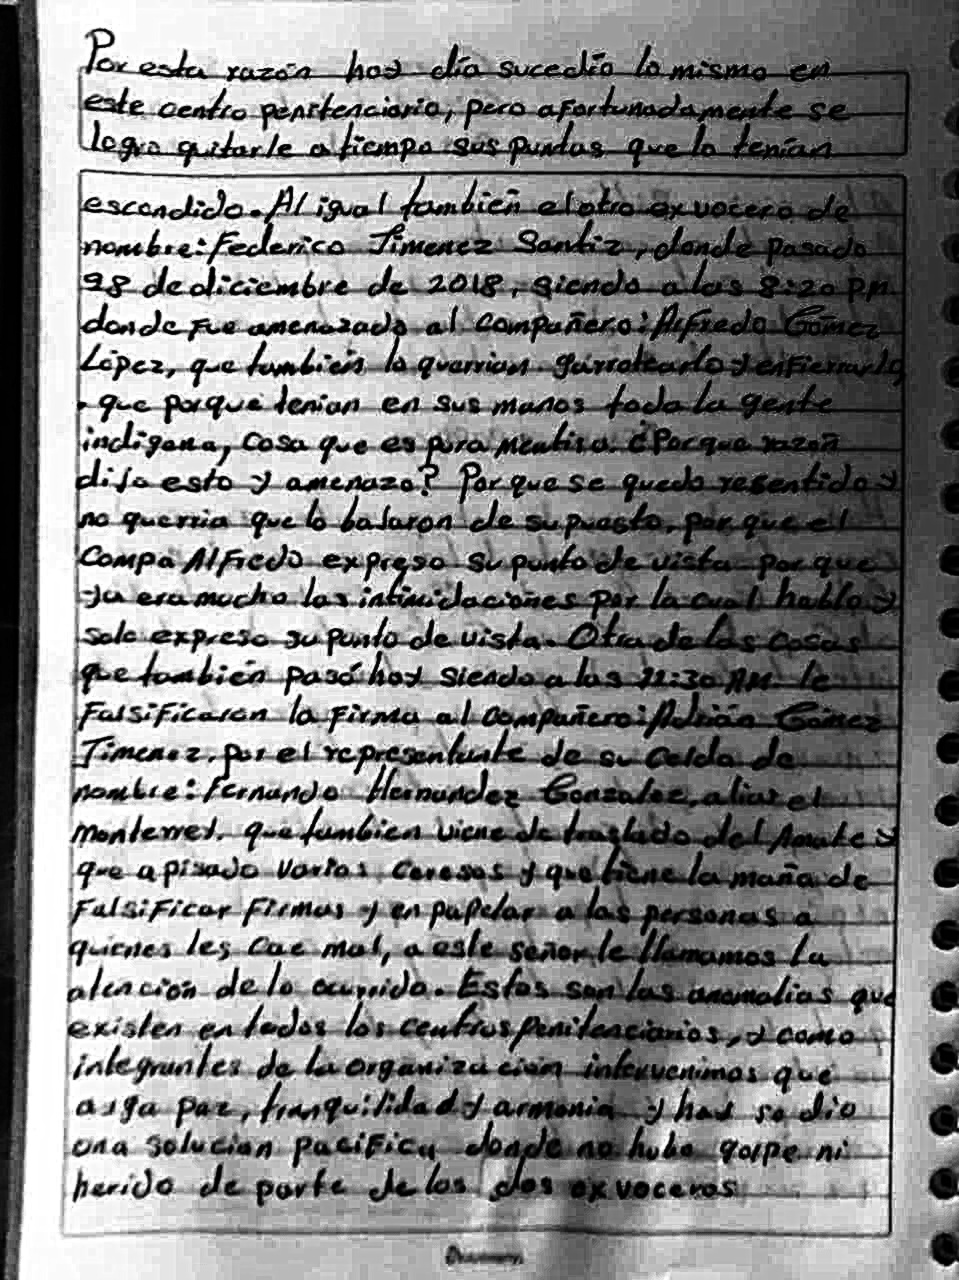 Por esta razón hoy día sucedio lo mismo en
este centro penitenciario, pero afortunadamente se
logro quitarle a tiempo sus puntas que lo tenían
escondido. Al igual también el otro ex vocero de
nombre: Federico Jimenez Santiz, donde pasado
28 de diciembre de 2018, siendo a las 8:20 PM
donde fue amenazado al compañero: Alfredo Gómez
López, que también lo querrian garrotearlo y enfierrarlo
que porque tenian en sus manos toda la gente
indigena, cosa que es pura mentira. ¿Porque razón
dijo esto y amenazo? Porque se quedo resentido y
no querria que lo bajaron de su puesto, porque el
compa Alfredo expreso su punto de vista porque
ya era mucho las intimidaciones por la cual hablo y
solo expreso su punto de vista. Otra de las cosas
que también pasó hoy siendo a las 11:30 AM le
falsificaron la firma al compañero: Adrián Gómez
Jimenez, por el representante de su celda de
nombre: Fernando Hernandez Gonzalez, alias el
monterrey, que tambien viene de traslado del Amate y
que a pisado varios ceresos y que tiene la maña de
falsificar firmas y en papelar a las personas a
quienes les cae mal, a este señor le llamamos la
atención de lo ocurrido. Estos son las anomalias que
existen en todos los centros penitenciarios, y como
integrantes de la organización intervenimos que
aiga paz, tranquilidad y armonia y hoy se dio
una solucion pacifica donde no hubo golpe ni
herido de parte de los dos ex voceros